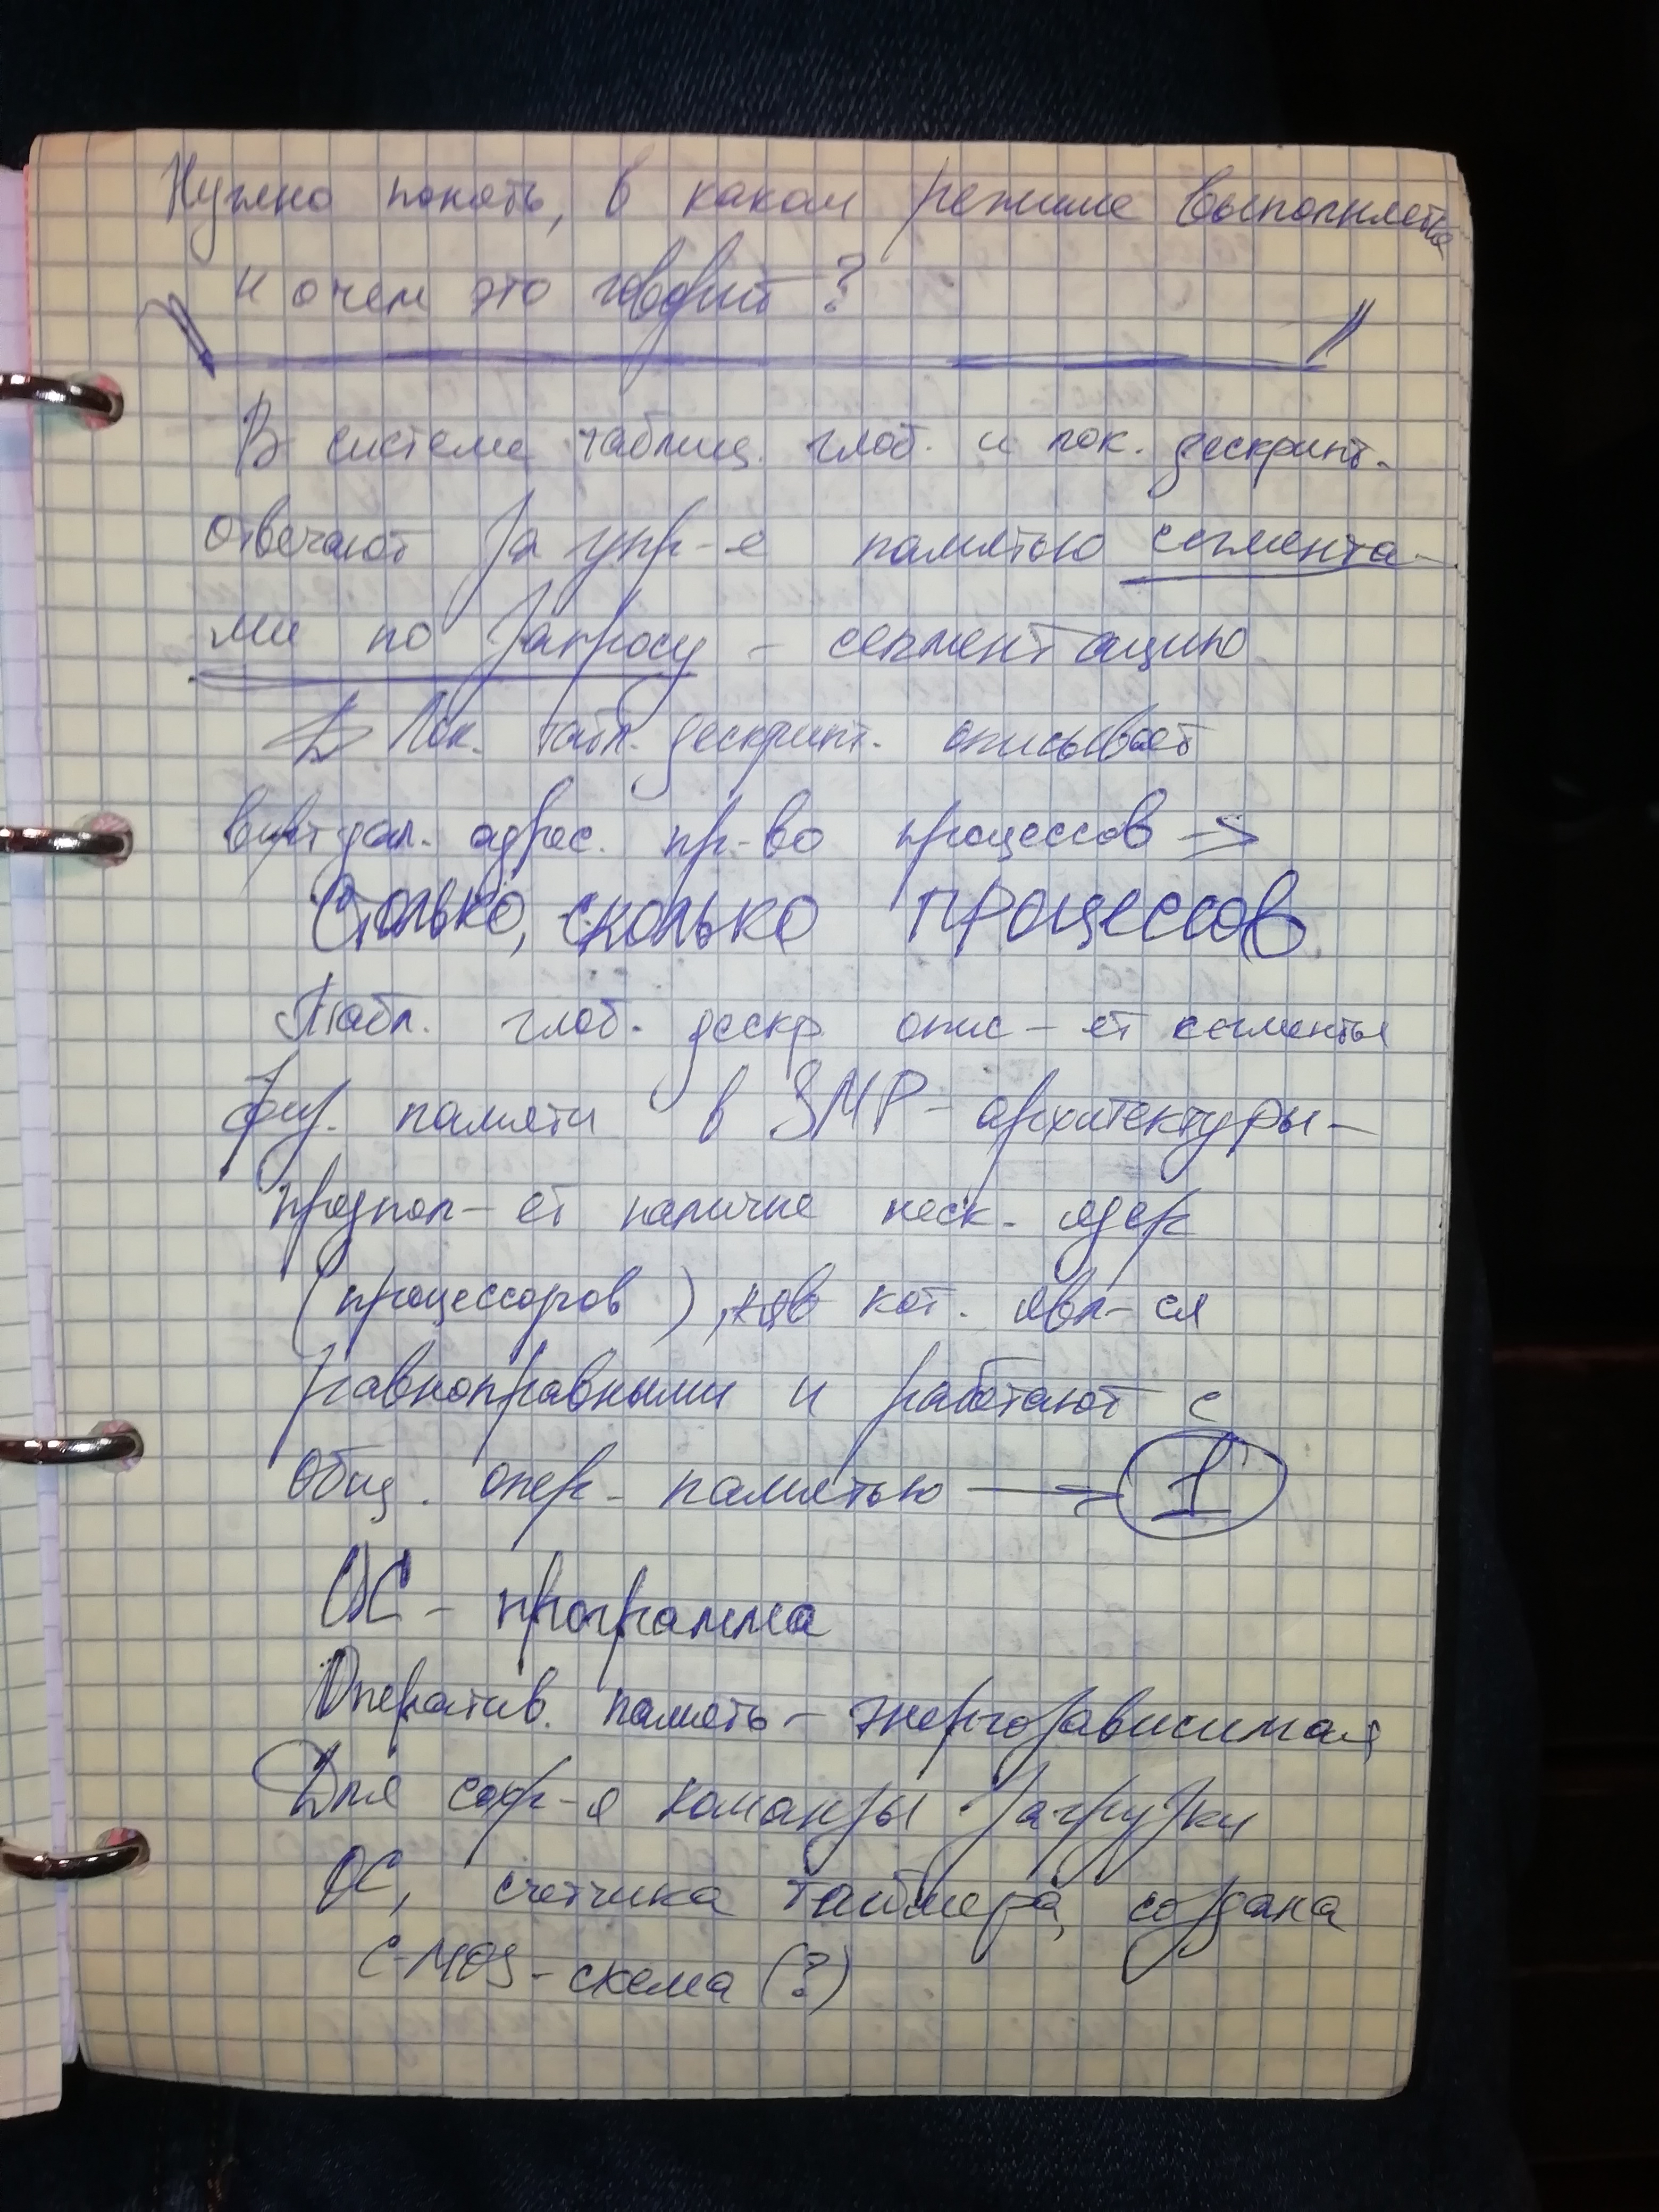 Нужно понять, в каком режиме выполняется
и о чем это говорит?
В системе таблиц. глоб. и лок. дескрипт.
отвечают за упр-е памятью сегмента-
ми по запросу - сегментацию
Лок. табл. дескрипт. описывает
виртуал. адрес. пр-во процессов →
Столько, сколько процессов
Табл. глоб. дескр опис-ет сегменты
физ. памяти в SMP-архитектуры-
предпол-ет наличие неск. ядер
(процессоров), кот. явл-ся
равноправными и работают с
общ. опер. памятью → 1
ОС - программа
Оператив. память - энергозависимая
Для сохр-я команды загрузки
ОС, счетчика таймера, создана
C-MOS-схема (?)